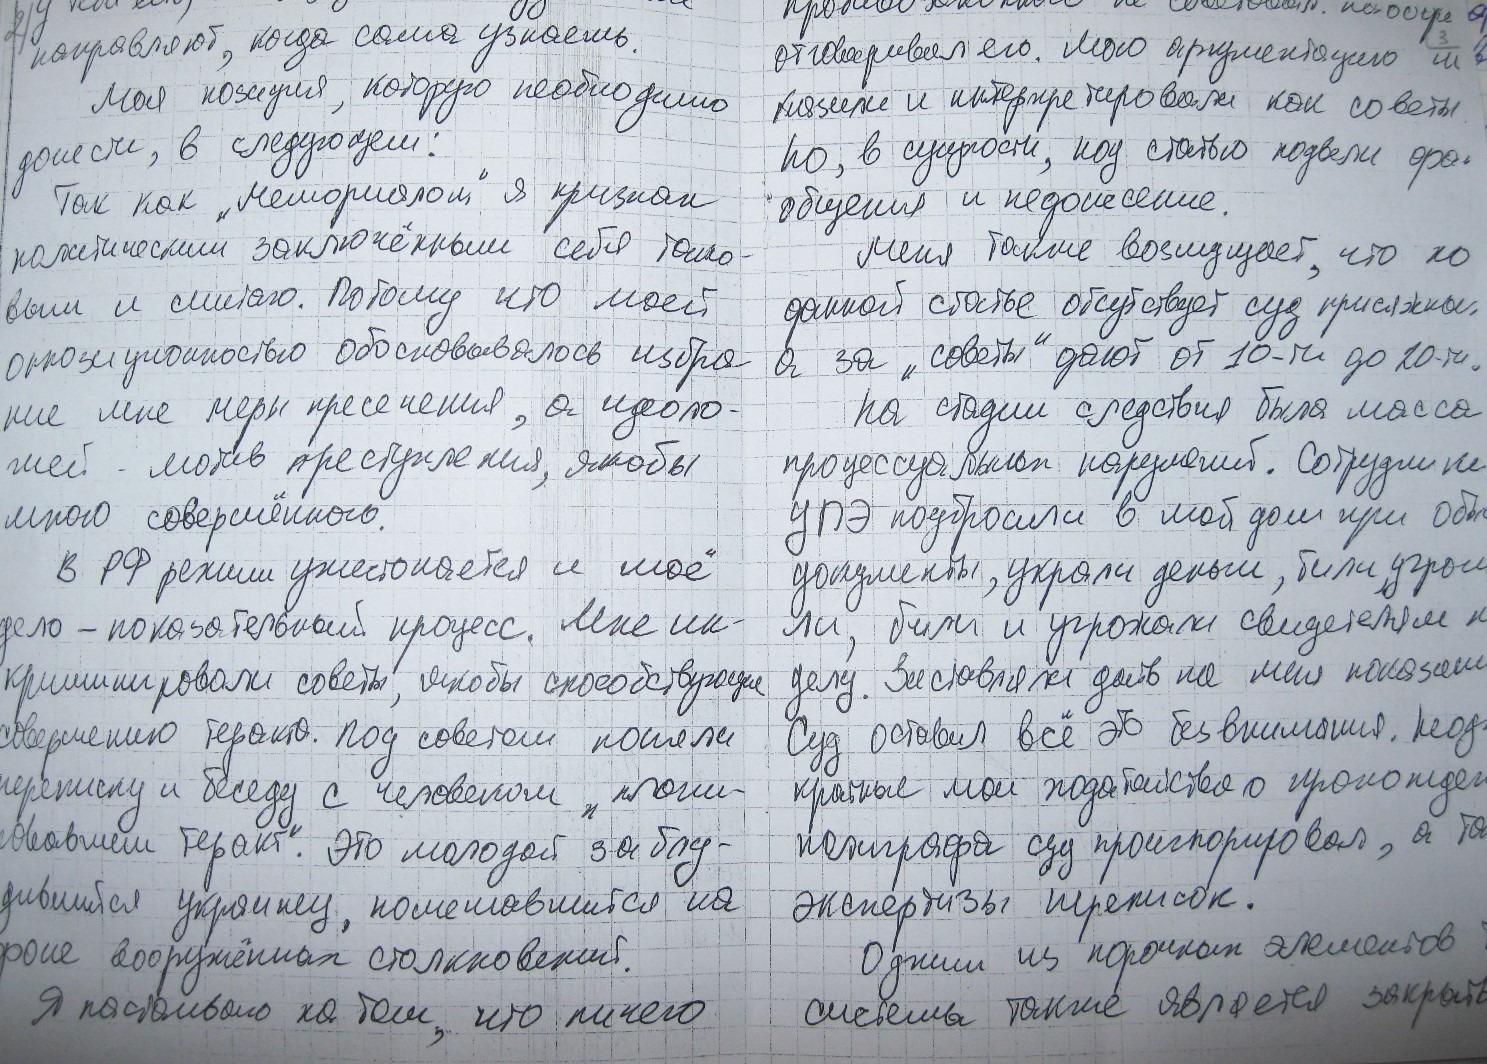 направляют, когда сама узнаешь.
Моя позиция, которую необходимо
донести, в следующем:
Так как „Мемориалом" я признан
политическим заключённым себя тако-
вым и считаю. Потому что моей
оппозиционностью обосновывалось избра-
ние мне меры пресечения, а идеоло-
гией - мотив преступления, якобы
мною совершённого.
В РФ режим ужесточается и моё
дело – показательный процесс. Мне ин-
криминировали советы, якобы способствующие
совершению теракта. Под советом поняли
переписку и беседу с человеком „плани-
ровавшем теракт". Это молодой заблу-
дившийся украинец, помешавшийся на
фоне вооружённых столкновений.
Я настаиваю на том, что ничего
отговаривал его. Мою аргументацию
и интерпретировали как советы
Но, в сущности, под статью подвели
общения и недонесение.
Меня также возмущает, что по
данной статье отсутствует суд присяжных,
а за „советы" дают от 10-ти до 20-ти.
На стадии следствия была масса
процессуальных нарушений. Сотрудники
УПЭ подбросили в мой дом при
документы, украли деньги, били,
ли, били и угрожали свидетелям
делу. Заставляли дать на меня
Суд оставил всё это без внимания.
кратные мои ходатайства о
полиграфа суд проигнорировал, а
экспертизы переписок.
Одним из порочных элементов
системы также является